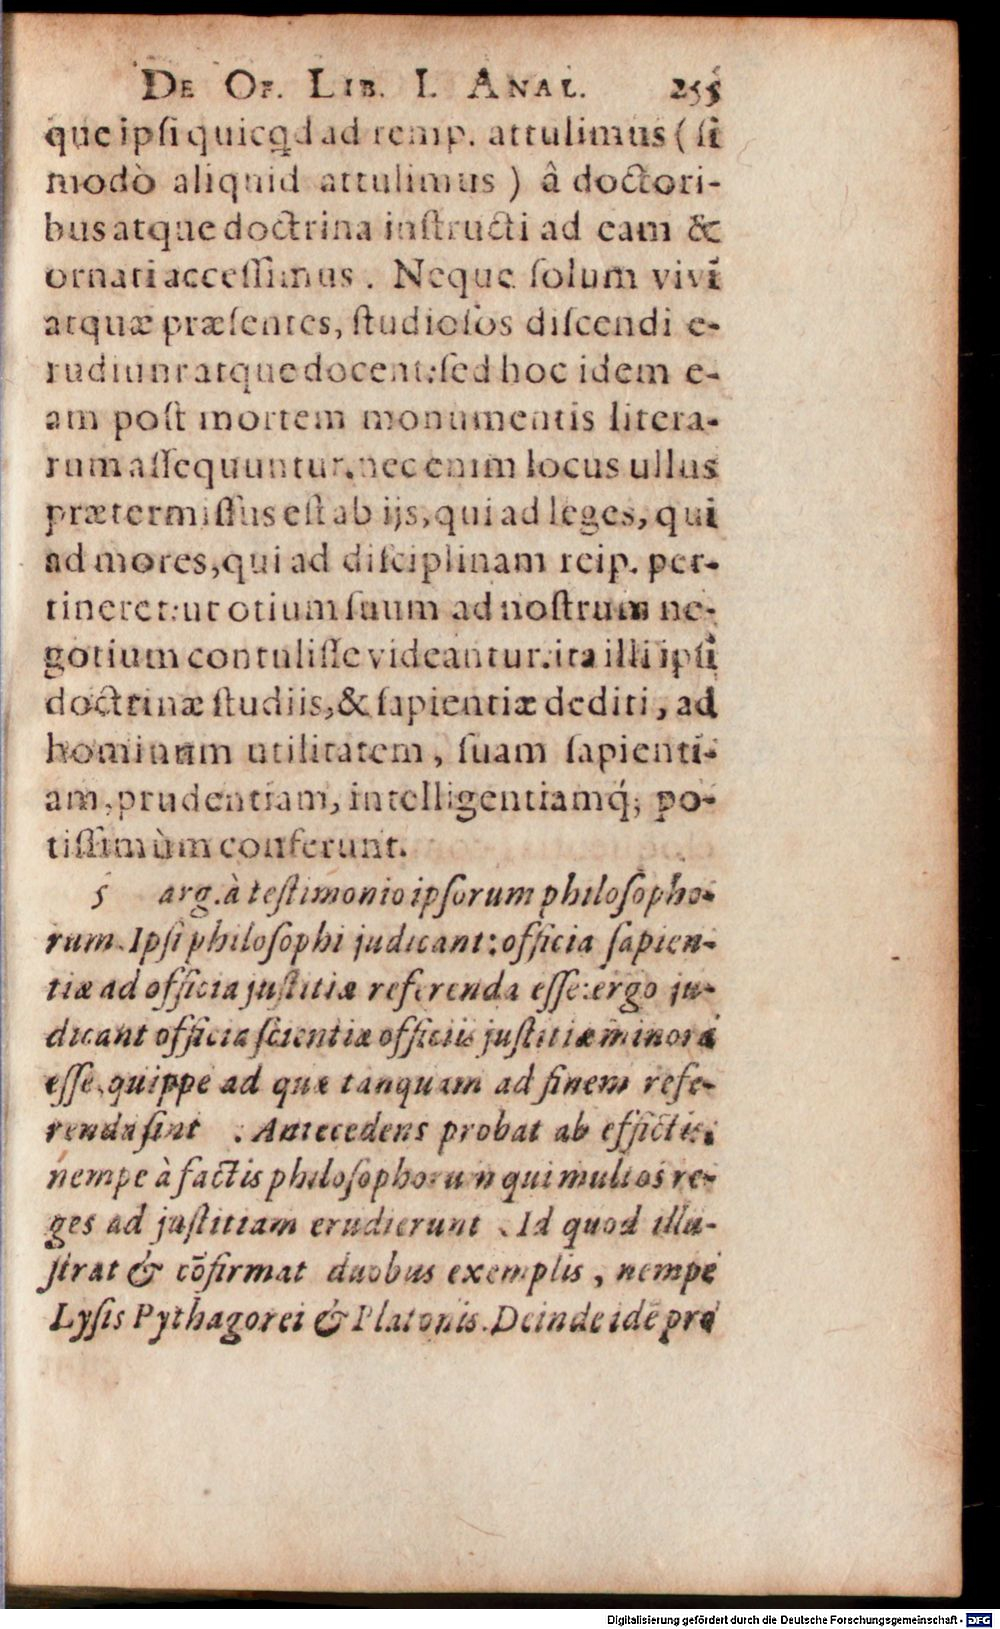 DE OF. LIB. I. ANAL. 255
que ipsi quicqd ad remp. attulimus ( si
modò aliquid attulimus ) â doctori-
bus atque doctrina instructi ad eam &
ornati accessimus . Neque solum vivi
atquæ præsentes, studiosos discendi e-
rudiunt atque docent: sed hoc idem e-
am post mortem monumentis litera-
rum assequuntur. nec enim locus ullus
prætermissus est ab ijs, qui ad leges, qui
ad mores, qui ad disciplinam reip. per-
tineret: ut otium suum ad nostrum ne-
gotium contulisse videantur. ita illi ipsi
doctrinæ studiis, & sapientiæ dediti, ad
hominum utilitatem, suam sapienti-
am, prudentiam, intelligentiamq́; po-
tissimùm conferunt.
5 arg. à testimonio ipsorum philosopho-
rum. Ipsi philosophi judicant: officia sapien-
tiæ ad officia justitiæ referenda esse: ergo ju-
dicant officia scientiæ officiis justitiæ minora
esse, quippe ad quæ tanquam ad finem refe-
renda sint . Antecedens probat ab effictis,
nempe à factis philosophorum qui multos re-
ges ad justitiam erudierunt . Id quod illu-
strat & cōfirmat duobus exemplis, nempe
Lysis Pythagorei & Platonis. Deinde idē pro
Digitalisierung gefördert durch die Deutsche Forschungsgemeinschaft - DFG